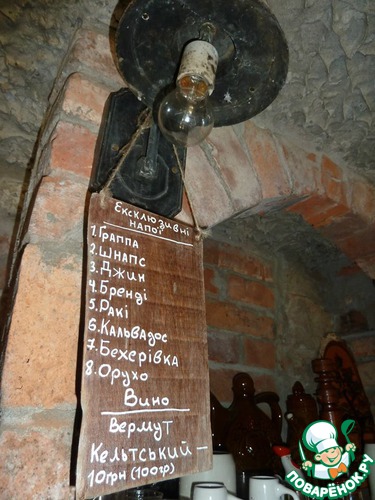 Ексклюзивні
напої
1. Граппа
2. Шнапс
3. Джин
4. Бренді
5. Ракі
6. Кальвадос
7. Бехерівка
8. Орухо
Вино
Вермут
Кельтський —
10грн (100гр)
ПОВАРЁНОК.РУ